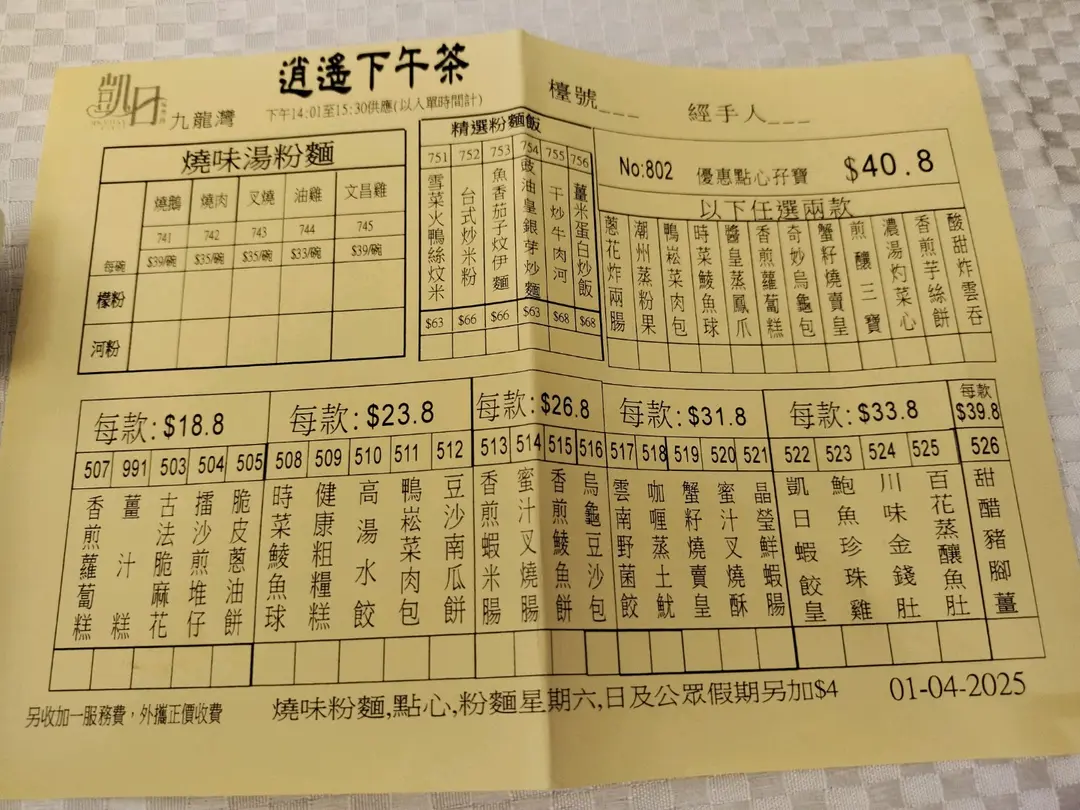 逍遙下午茶
凱日 九龍灣
下午14:01至15:30供應(以入單時間計)
檯號___ 經手人___
燒味湯粉麵
燒鵝 燒肉 叉燒 油雞 文昌雞
741 742 743 744 745
每碗 $39/碗 $35/碗 $35/碗 $33/碗 $39/碗
檬粉
河粉
精選粉麵飯
751 752 753 754 755 756
雪菜火鴨絲炆米
台式炒米粉
魚香茄子炆伊麵
豉油皇銀芽炒麵
干炒牛肉河
薑米蛋白炒飯
$63 $66 $66 $63 $68 $68
No:802 優惠點心孖寶 $40.8
以下任選兩款
蔥花炸兩腸
潮州蒸粉果
鴨崧菜肉包
時菜鯪魚球
醬皇蒸鳳爪
香煎蘿蔔糕
奇妙烏龜包
蟹籽燒賣皇
煎釀三寶
濃湯灼菜心
香煎芋絲餅
酸甜炸雲吞
每款:$18.8 每款:$23.8 每款:$26.8 每款:$31.8 每款:$33.8 每款$39.8
507 991 503 504 505 508 509 510 511 512 513 514 515 516 517 518 519 520 521 522 523 524 525 526
香煎蘿蔔糕
薑汁糕
古法脆麻花
擂沙煎堆仔
脆皮蔥油餅
時菜鯪魚球
健康粗糧糕
高湯水餃
鴨崧菜肉包
豆沙南瓜餅
香煎蝦米腸
蜜汁叉燒腸
香煎鯪魚餅
烏龜豆沙包
雲南野菌餃
咖喱蒸土魷
蟹籽燒賣皇
蜜汁叉燒酥
晶瑩鮮蝦腸
凱日蝦餃皇
鮑魚珍珠雞
川味金錢肚
百花蒸釀魚肚
甜醋豬腳薑
另收加一服務費，外攜正價收費
燒味粉麵,點心,粉麵星期六,日及公眾假期另加$4
01-04-2025